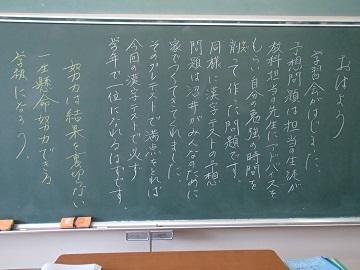 おはよう
学習会がはじまった。
予想問題は担当の生徒が
教科担当の先生にアドバイスを
もらい、自分の勉強の時間を
削って作った問題です。
同様に漢字テストの予想
問題は沼井がみんなのために
家でつくってきてくれました。
そのプレテストで満点をとれば
今回の漢字テストで必ず
学年で一位になれるはずです。
努力は結果を裏切らない
一生懸命努力できる
学級になろう。